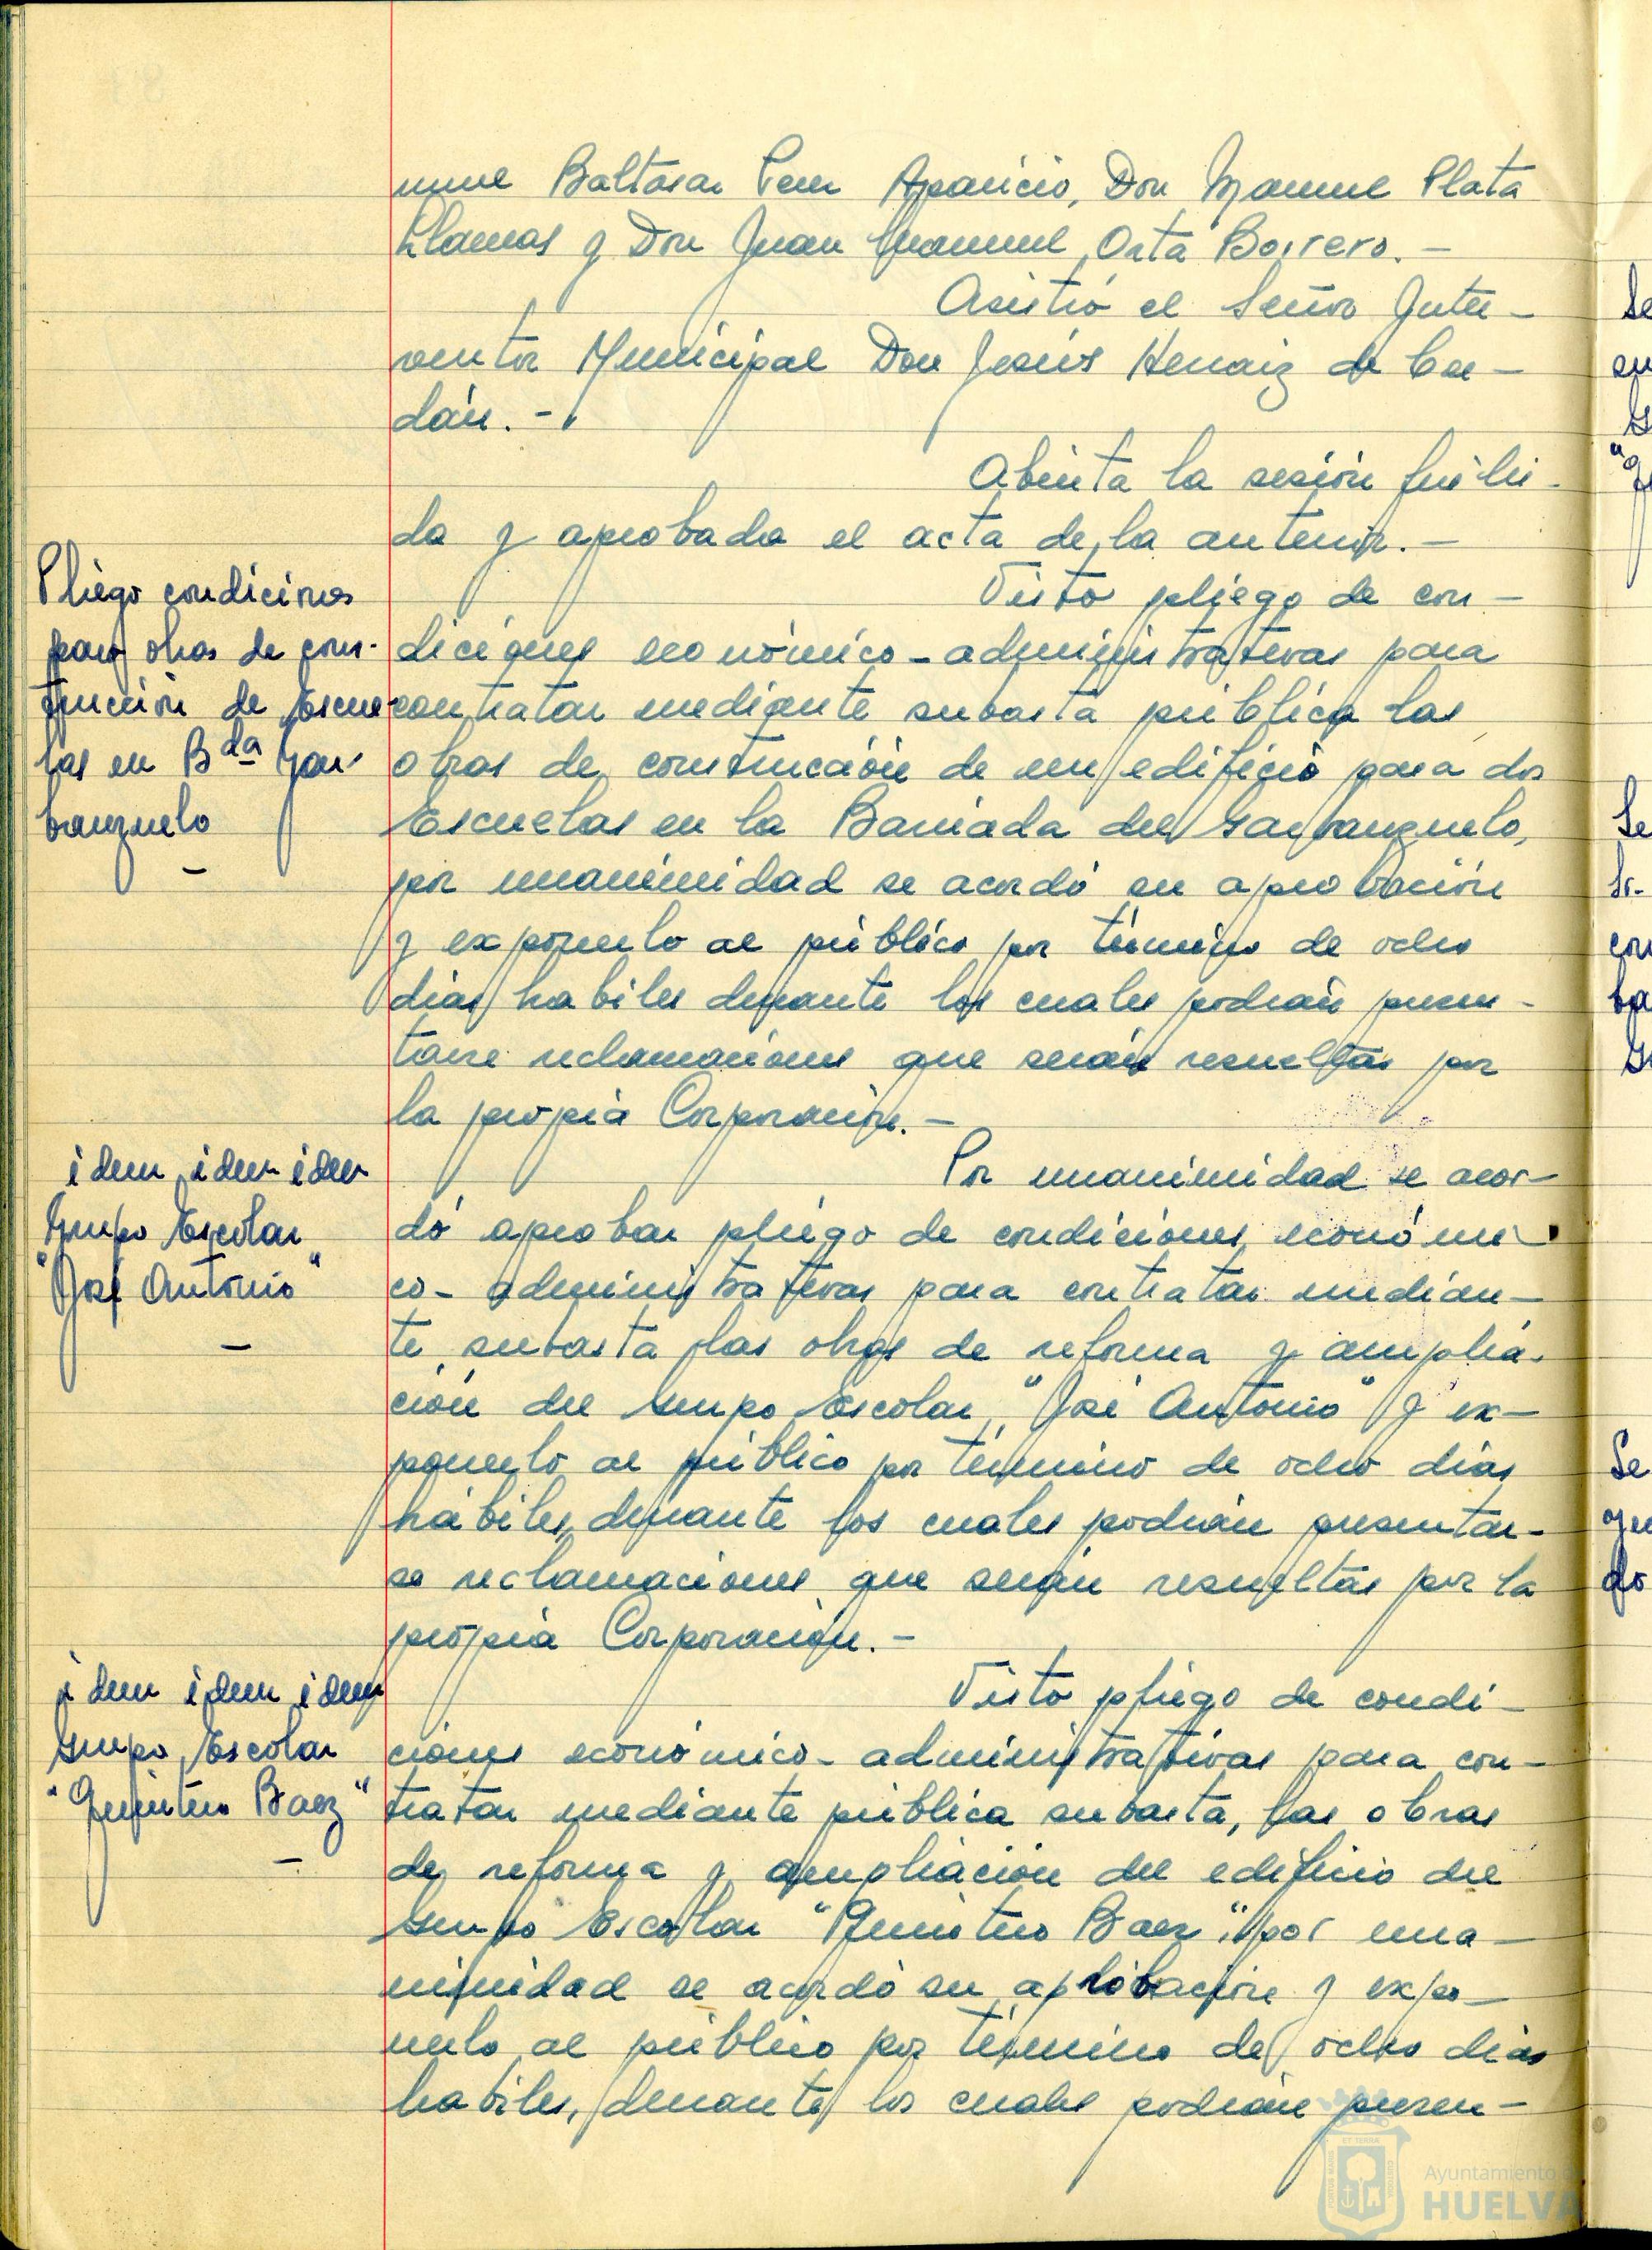 nuel Baltasar Pena Aparicio, Don Manuel Plata
Llamas y Don Juan Manuel Orta Borrero. -
Asistió el Señor Inter-
ventor Municipal Don Jesús Henaiz de Ce-
dán. -
Abierta la sesión fué lei-
da y aprobada el acta de la anterior. -
Pliego condiciones
para obras de cons-
trucción de Escue-
las en Bda Gar-
banzuelo
-
Visto pliego de con-
diciones económico-administrativas para
contratar mediante subasta pública las
obras de construcción de un edificio para dos
Escuelas en la Barriada del Garbanzuelo,
por unanimidad se acordó su aprobación
y exponerlo al público por término de ocho
dias habiles durante los cuales podrán presen-
tarse reclamaciones que serán resueltas por
la propia Corporación. -
idem idem idem
Grupo Escolar
"José Antonio"
-
Por unanimidad se acor-
dó aprobar pliego de condiciones económi-
co-administrativas para contratar median-
te subasta las obras de reforma y amplia-
ción del Grupo Escolar "José Antonio" y ex-
ponerlo al público por término de ocho dias
hábiles, durante los cuales podrán presentar-
se reclamaciones que serán resueltas por la
propia Corporación. -
idem idem idem
Grupo Escolar
"Quintero Baez"
-
Visto pliego de condi-
ciones económico-administrativas para con-
tratar mediante pública subasta, las obras
de reforma y ampliación del edificio del
Grupo Escolar "Quintero Baez", por una-
nimidad se acordó su aprobación y expo-
nerlo al público por término de ocho dias
habiles, durante los cuales podrán presen-
Ayuntamiento de
HUELVA